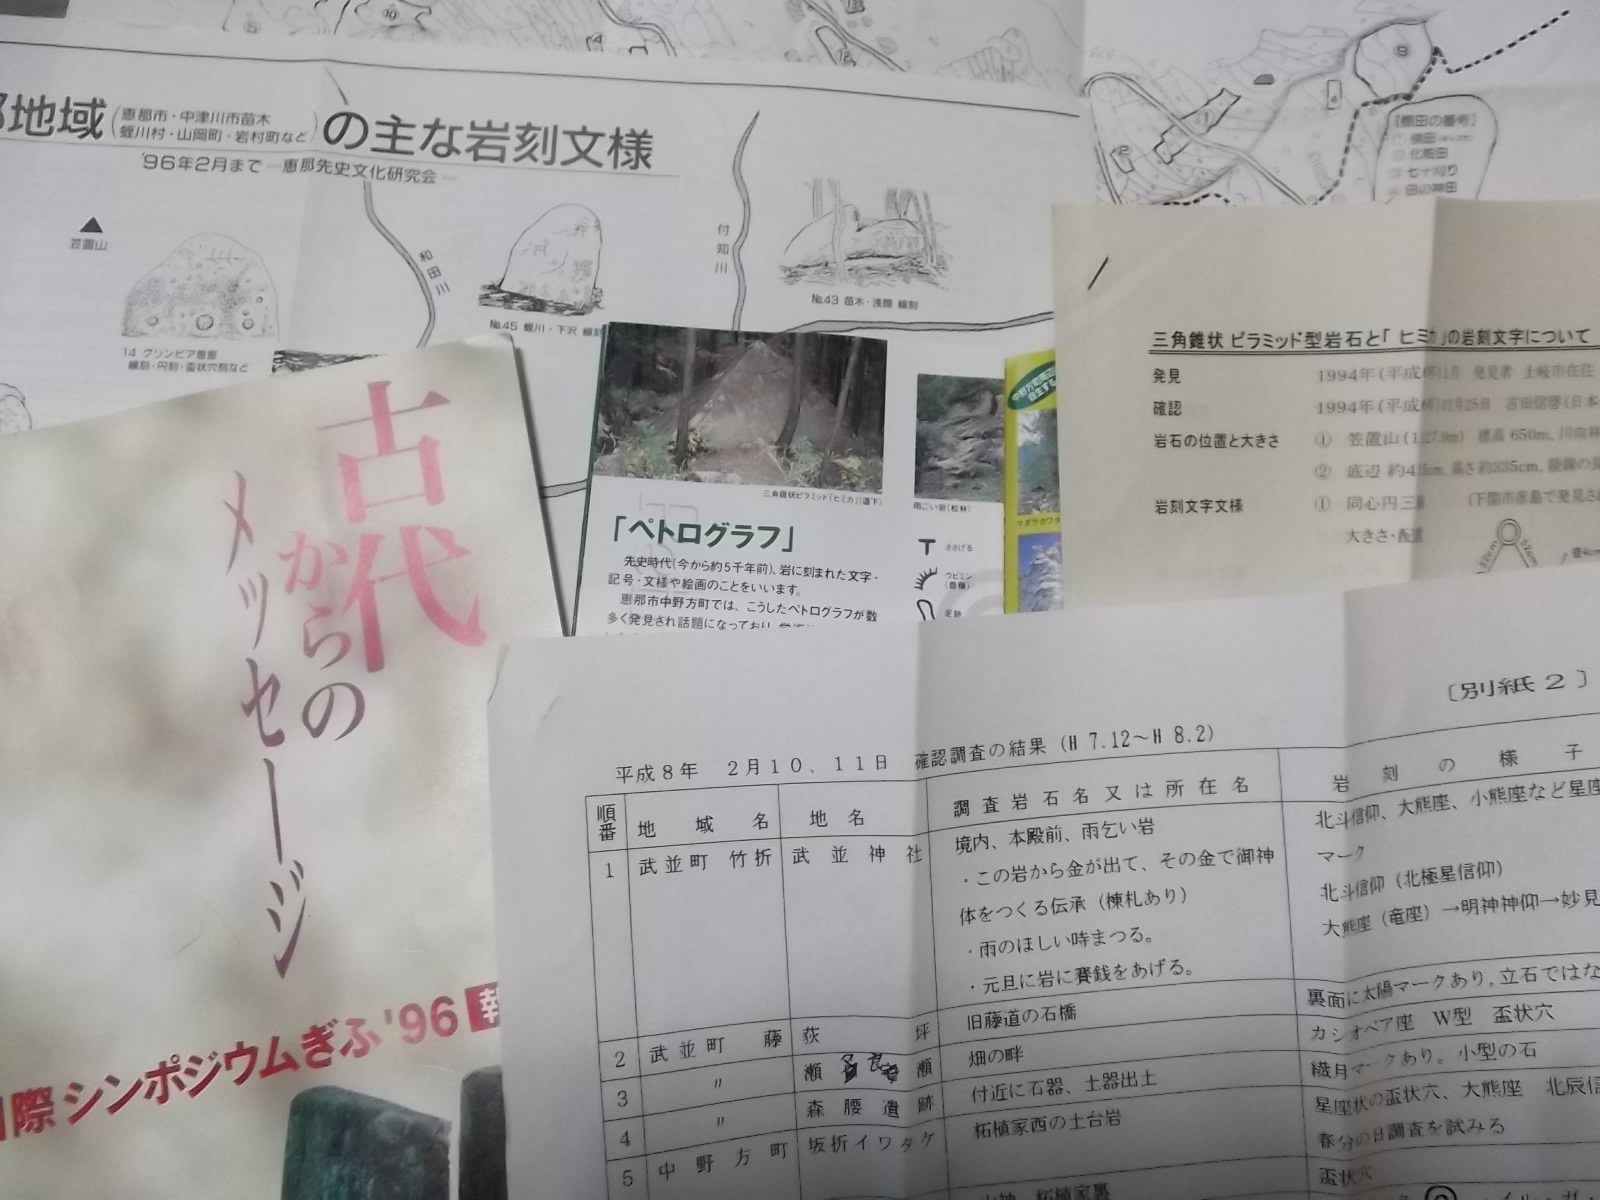 地域(恵那市・中津川市苗木
蛭川村・山岡町・岩村町など)の主な岩刻文様
'96年2月まで ―恵那先史文化研究会―
笠置山
和田川
付知川
14 グリンピア恵那
線刻・円刻・盃状穴刻など
№45 蛭川・下沢 線刻
№43 苗木・浅間 線刻
[棚田の番号]
化粧田
七十刈り
田の神田
三角錐状 ピラミッド型岩石と「 ヒミカ」の岩刻文字について
発見 1994年(平成 発見者 土岐市在住
確認 1994年(平成 12月25日 吉田信啓(日本
岩石の位置と大きさ ① 笠置山( 標高 650m、川向林
② 底辺 約4 cm、高さ約335cm、稜線の長
岩刻文字文様 ① 同心円三重 (下関市彦島で発見さ
大きさ・配置
52cm
52cm
径4cm
三角錐状ピラミッド「ヒミカ」(道下)
雨ごい岩(松林)
「ペトログラフ」
先史時代(今から約5千年前)、岩に刻まれた文字・
記号・文様や絵画のことをいいます。
恵那市中野方町では、こうしたペトログラフが数
多く発見され話題になっており、
ささげる
ウビミン
足跡
マダラカワタ
古代
からの
メッセージ
国際 シンポジウムぎふ'96 報
〔別紙 2 〕
平成8年 2月10、11日 確認調査の結果 (H 7.12〜H 8.2)
順番 地域名 地名 調査岩石名又は所在名 岩刻の様子
1 武並町 竹折 武並神社 境内、本殿前、雨乞い岩 北斗信仰、大熊座、小熊座など星座
・この岩から金が出て、その金で御神 マーク
体をつくる伝承(棟札あり) 北斗信仰(北極星信仰)
・雨のほしい時まつる。 大熊座(竜座)→明神神仰→妙見
・元旦に岩に賽銭をあげる。
2 武並町 藤 荻坪 旧藤道の石橋 裏面に太陽マークあり。立石ではな
3 〃 瀬 瀬 畑の畔 カシオペア座 W型 盃状穴
4 〃 森腰遺跡 付近に石器、土器出土 繊月マークあり。小型の石
5 中野方町 坂折イワタケ 柘植家西の土台岩 星座状の盃状穴、大熊座 北辰信
春分の日調査を試みる
山神 柘植家裏 盃状穴